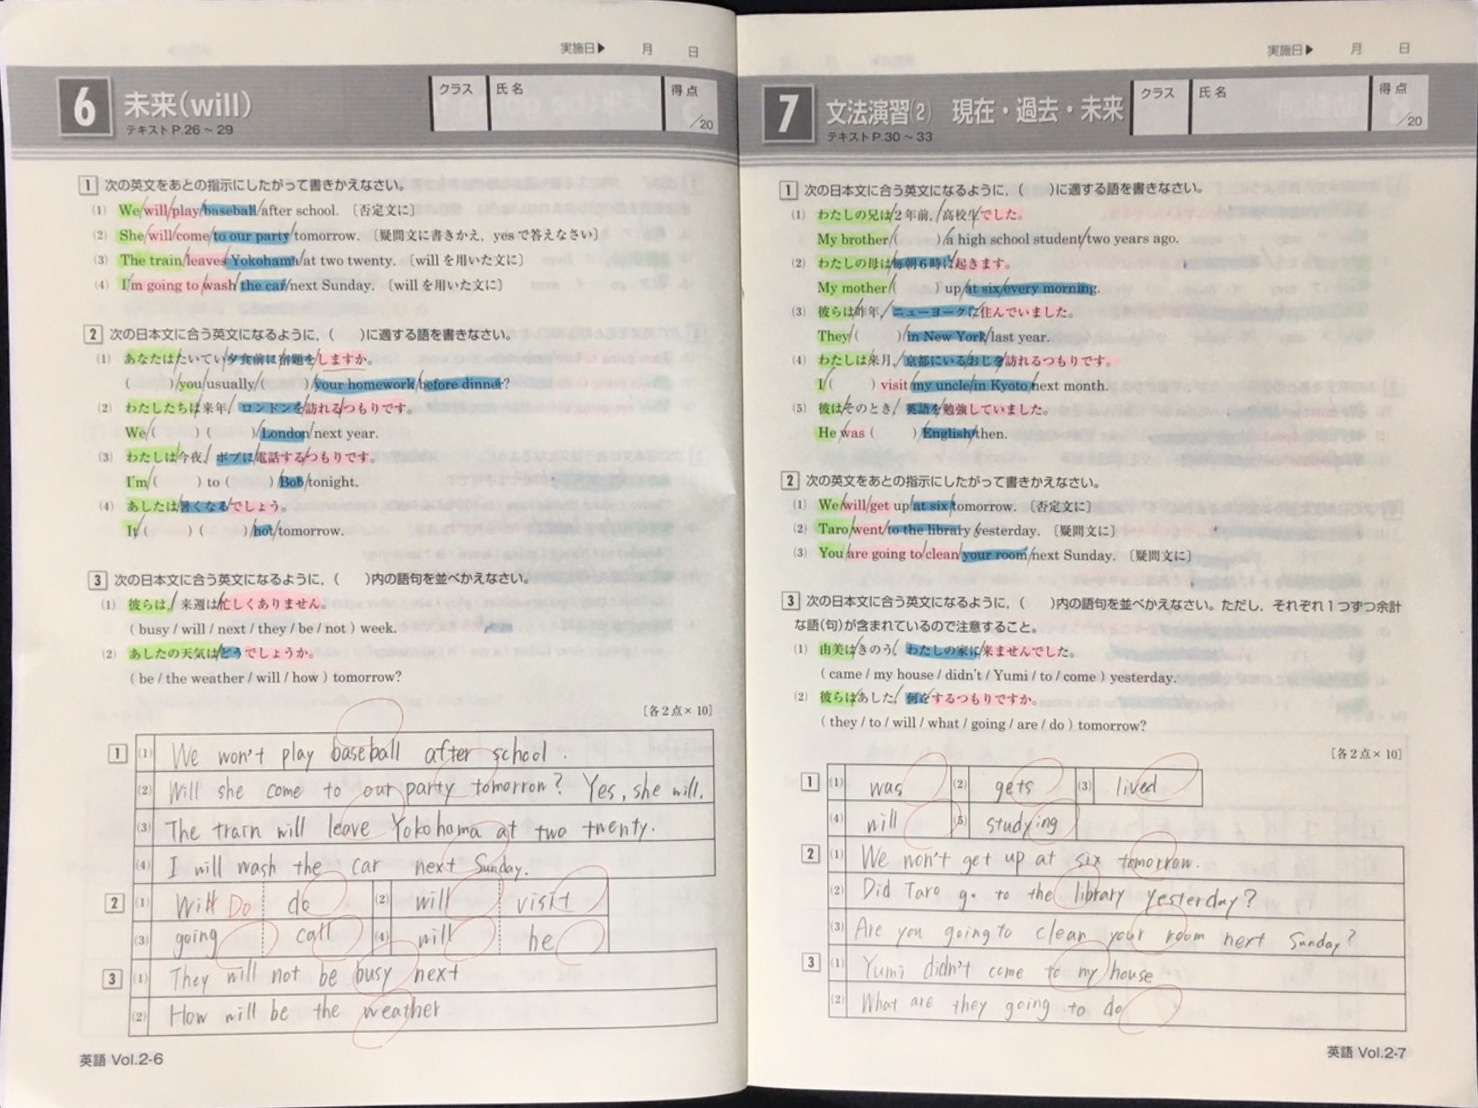 実施日▶ 月 日
6 未来(will)
テキストP.26～29
クラス 氏名 得点 /20
1 次の英文をあとの指示にしたがって書きかえなさい。
(1) We/will/play/baseball/after school. 〔否定文に〕
(2) She/will/come/to our party/tomorrow. 〔疑問文に書きかえ，yesで答えなさい〕
(3) The train/leaves/Yokohama/at two twenty. 〔willを用いた文に〕
(4) I'm going to/wash/the car/next Sunday. 〔willを用いた文に〕
2 次の日本文に合う英文になるように，( )に適する語を書きなさい。
(1) あなたは/たいてい/夕食前に/宿題を/しますか。
( )/you/usually/( )/your homework/before dinner?
(2) わたしたちは/来年，/ロンドンを/訪れる/つもりです。
We/( ) ( )/London/next year.
(3) わたしは/今夜，/ボブに/電話する/つもりです。
I'm/( ) to ( )/Bob/tonight.
(4) あしたは/暑くなる/でしょう。
It/( ) ( )/hot/tomorrow.
3 次の日本文に合う英文になるように，( )内の語句を並べかえなさい。
(1) 彼らは，/来週は/忙しくありません。
( busy / will / next / they / be / not ) week.
(2) あしたの天気は/どう/でしょうか。
( be / the weather / will / how ) tomorrow?
[各2点×10]
1 (1) We won't play baseball after school.
(2) Will she come to our party tomorrow? Yes, she will.
(3) The train will leave Yokohama at two twenty.
(4) I will wash the car next Sunday.
2 (1) Will Do do (2) will visit
(3) going call (4) will be
3 (1) They will not be busy next
(2) How will be the weather
英語 Vol.2-6
実施日▶ 月 日
7 文法演習(2) 現在・過去・未来
テキストP.30～33
クラス 氏名 得点 /20
1 次の日本文に合う英文になるように，( )に適する語を書きなさい。
(1) わたしの兄は/2年前，/高校生/でした。
My brother/( )/a high school student/two years ago.
(2) わたしの母は/毎朝6時に/起きます。
My mother/( ) up/at six/every morning.
(3) 彼らは/昨年，/ニューヨークに/住んでいました。
They/( )/in New York/last year.
(4) わたしは/来月，/京都にいる/おじを/訪れるつもりです。
I/( ) visit my uncle/in Kyoto/next month.
(5) 彼は/そのとき，/英語を/勉強していました。
He was ( )/English/then.
2 次の英文をあとの指示にしたがって書きかえなさい。
(1) We/will/get up/at six/tomorrow. 〔否定文に〕
(2) Taro/went/to the library/yesterday. 〔疑問文に〕
(3) You/are going to/clean/your room/next Sunday. 〔疑問文に〕
3 次の日本文に合う英文になるように，( )内の語句を並べかえなさい。ただし，それぞれ1つずつ余計
な語(句)が含まれているので注意すること。
(1) 由美は/きのう，/わたしの家に/来ませんでした。
( came / my house / didn't / Yumi / to / come ) yesterday.
(2) 彼らは/あした，/何を/するつもりですか。
( they / to / will / what / going / are / do ) tomorrow?
[各2点×10]
1 (1) was (2) gets (3) lived
(4) will (5) studying
2 (1) We won't get up at six tomorrow.
(2) Did Taro go to the library yesterday?
(3) Are you going to clean your room next Sunday?
3 (1) Yumi didn't come to my house
(2) What are they going to do
英語 Vol.2-7